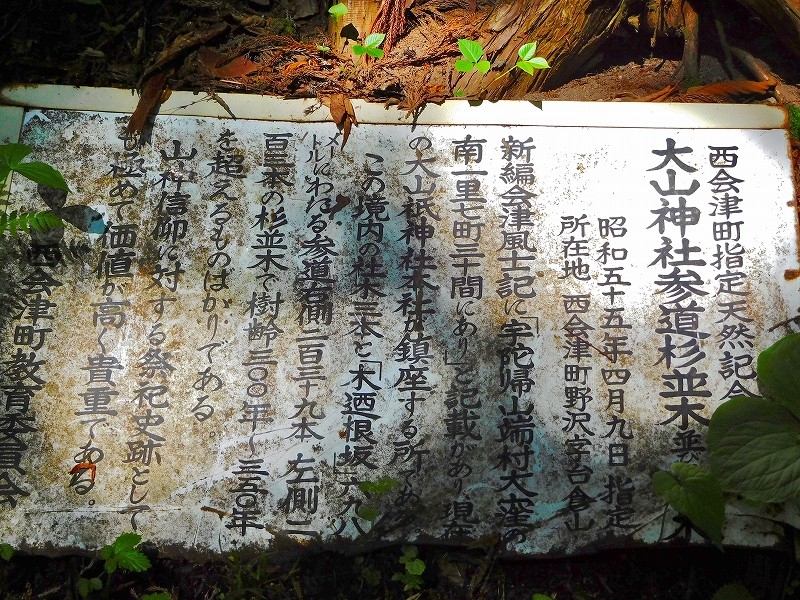 西会津町指定天然記念
大山神社参道杉並木並
昭和五十五年四月九日指定
所在地 西会津町野沢字台倉山
新編会津風土記に「宇陀帰山端村大窪の
南一里七町三十間にあり」と記載があり現在
の大山祇神社本社が鎮座する所であ
この境内の社木三本と「木迺根坂」六九八
メートルにわたる参道右側二百三十九本 左側一
百三本の杉並木で樹齢三〇〇年〜三五〇年
を超えるものばかりである
山神信仰に対する祭祀史跡として
も極めて価値が高く貴重である。
西会津町教育委員会